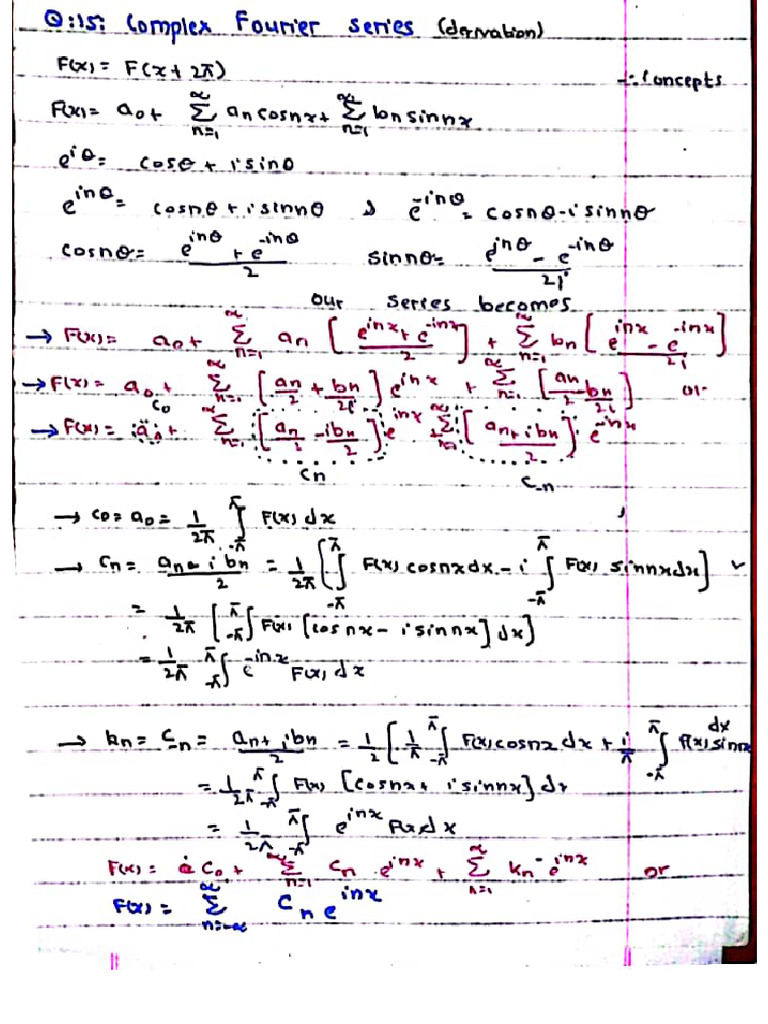 Q:15: Complex Fourier Series (derivation)
F(x) = F(x + 2π)
∴ Concepts
F(x) = a₀ + ∑_{n=1}^{∞} aₙ cosnx + ∑_{n=1}^{∞} bₙ sinnx
e^{iθ} = cosθ + i sinθ
e^{inθ} = cosnθ + i sinnθ , e^{-inθ} = cosnθ - i sinnθ
cosnθ = (e^{inθ} + e^{-inθ})/2   sinnθ = (e^{inθ} - e^{-inθ})/2i
our series becomes
→ F(x) = a₀ + ∑_{n=1}^{∞} aₙ [(e^{inx} + e^{-inx})/2] + ∑_{n=1}^{∞} bₙ [(e^{inx} - e^{-inx})/2i]
→ F(x) = a₀ + ∑_{n=1}^{∞} [aₙ/2 + bₙ/2i] e^{inx} + ∑_{n=1}^{∞} [aₙ/2 - bₙ/2i] or
c₀
→ F(x) = a₀ + ∑_{n=1}^{∞} [aₙ/2 - ibₙ/2] e^{inx} ∑_{n=1}^{∞} [(aₙ + ibₙ)/2] e^{-inx}
cₙ   c₋ₙ
→ c₀ = a₀ = 1/2π ∫_{-π}^{π} F(x) dx
→ cₙ = (aₙ - ibₙ)/2 = 1/2π [∫_{-π}^{π} F(x) cosnx dx - i ∫_{-π}^{π} F(x) sinnx dx]
= 1/2π [∫_{-π}^{π} F(x) [cosnx - i sinnx] dx]
= 1/2π ∫_{-π}^{π} e^{-inx} F(x) dx
→ kₙ = c₋ₙ = (aₙ + ibₙ)/2 = 1/2 [1/π ∫_{-π}^{π} F(x) cosnx dx + i/π ∫_{-π}^{π} f(x) sinnx dx
= 1/2π ∫_{-π}^{π} F(x) [cosnx + i sinnx] dx
= 1/2π ∫_{-π}^{π} e^{inx} F(x) dx
F(x) = c₀ + ∑_{n=1}^{∞} cₙ e^{inx} + ∑_{n=1}^{∞} kₙ e^{-inx} or
F(x) = ∑_{n=-∞}^{∞} cₙ e^{inx}